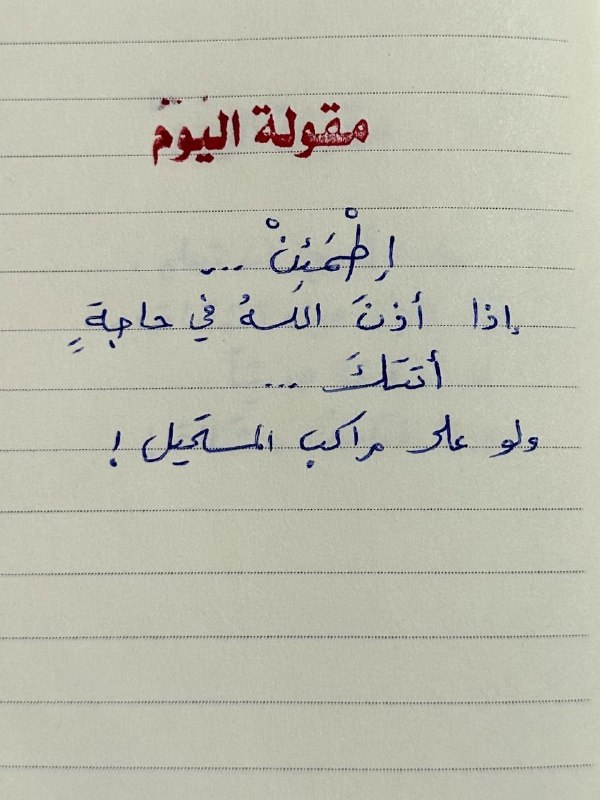 مقولة اليوم
اِطْمَئِنْ ...
إذا أذنَ اللهُ في حاجةٍ
أتتكَ ...
ولو على مراكب المستحيل !